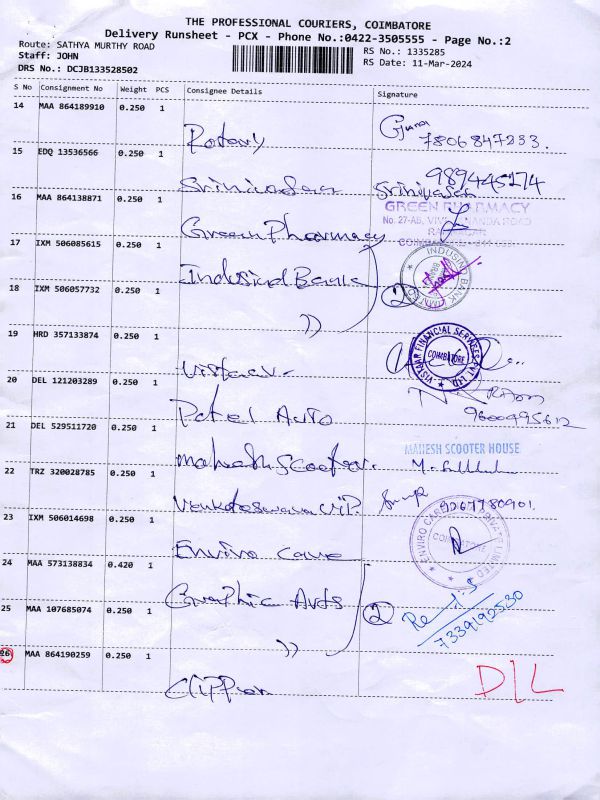 THE PROFESSIONAL COURIERS, COIMBATORE
Delivery Runsheet - PCX - Phone No.:0422-3505555 - Page No.:2
Route: SATHYA MURTHY ROAD
RS No.: 1335285
Staff: JOHN
RS Date: 11-Mar-2024
DRS No.: DCJB133528502
S No Consignment No Weight PCS Consignee Details Signature
14 MAA 864189910 0.250 1 Rotary 7806847233.
15 EDQ 13536566 0.250 1 Srinivasan Srinivasan 989445274
16 MAA 864138871 0.250 1 Green Pharmacy GREEN PHARMACY
No. 27-AB, ROAD
17 IXM 506085615 0.250 1 Indusind Bank INDUSIND BANK
18 IXM 506057732 0.250 1 )) 2
19 HRD 357133874 0.250 1 Vistaar VISTAAR FINANCIAL SERVICES PVT LTD. COIMBATORE
20 DEL 121203289 0.250 1 Patel Auto 9600495612
21 DEL 529511720 0.250 1 mahesh Scooter. MAHESH SCOOTER HOUSE
22 TRZ 320028785 0.250 1 Venkateswara V.P. 9267780901.
23 IXM 506014698 0.250 1 Enviro Care ENVIRO CARE PRIVATE LIMITED COIMBATORE
24 MAA 573138834 0.420 1 Graphic Arts
25 MAA 107685074 0.250 1 )) 2 7339192530
26 MAA 864190259 0.250 1 Clippson D/L